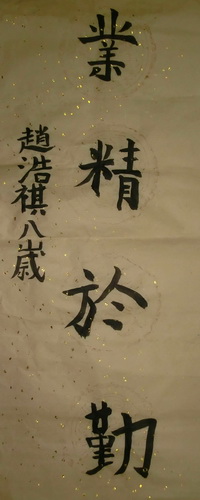 業精於勤
趙浩祺八歲